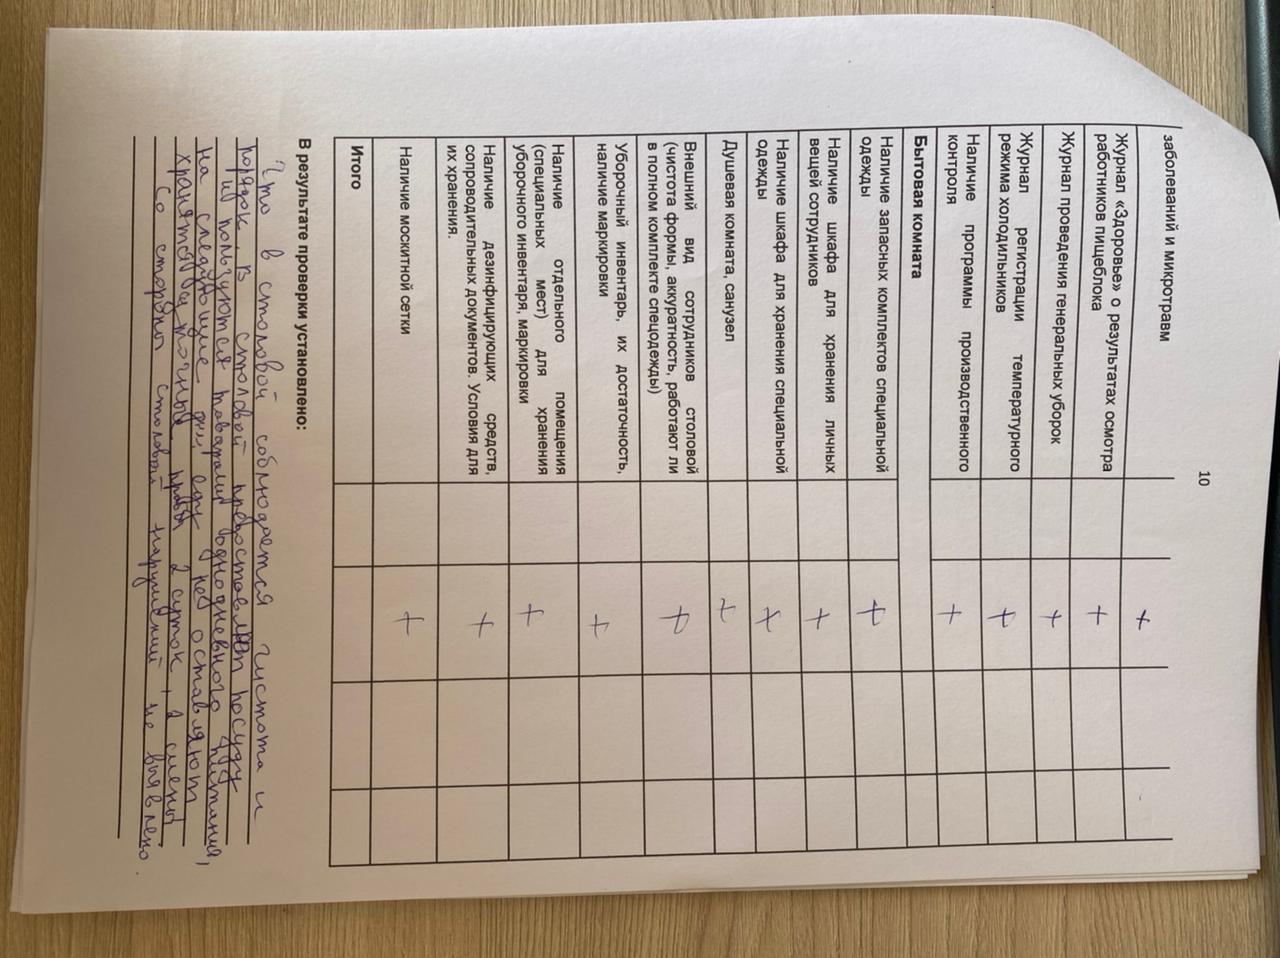 10
заболеваний и микротравм +
Журнал «Здоровье» о результатах осмотра
работников пищеблока +
Журнал проведения генеральных уборок +
Журнал регистрации температурного
режима холодильников +
Наличие программы производственного
контроля +
Бытовая комната
Наличие запасных комплектов специальной
одежды +
Наличие шкафа для хранения личных
вещей сотрудников +
Наличие шкафа для хранения специальной
одежды +
Душевая комната, санузел +
Внешний вид сотрудников столовой
(чистота формы, аккуратность, работают ли
в полном комплекте спецодежды) +
Уборочный инвентарь, их достаточность,
наличие маркировки +
Наличие отдельного помещения
(специальных мест) для хранения
уборочного инвентаря, маркировки +
Наличие дезинфицирующих средств,
сопроводительных документов. Условия для
их хранения. +
Наличие москитной сетки +
Итого
В результате проверки установлено:
Что в столовой соблюдается чистота и
порядок. В столовой предоставляют посуду
и пользуются товарами однодневного питания,
на следующие дни еду не оставляют
хранятся суточные пробы 2 суток, 2 смены
Со стороны столовой нарушений не выявлено.